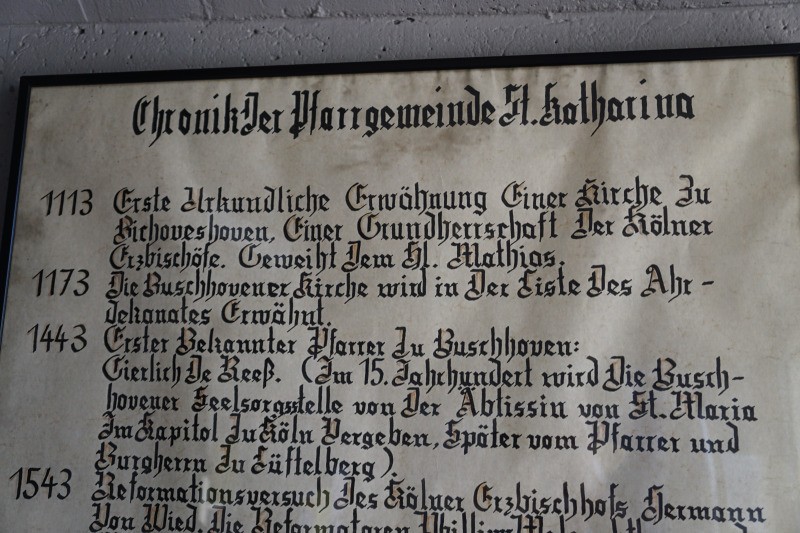 Chronik Der Pfarrgemeinde St. Katharina
1113 Erste Urkundliche Erwähnung Einer Kirche Zu
Bichoveshoven, Einer Grundherrschaft Der Kölner
Erzbischöfe. Geweiht Dem Hl. Mathias.
1173 Die Buschhovener Kirche wird in Der Liste Des Ahr-
dekanates Erwähnt.
1443 Erster Bekannter Pfarrer Zu Buschhoven:
Gierlich De Reeß. (Im 15. Jahrhundert wird Die Busch-
hovener Seelsorgsstelle von Der Äbtissin von St. Maria
Im Kapitol Zu Köln Vergeben, Später vom Pfarrer und
Burgherrn Zu Lüftelberg).
1543 Reformationsversuch Des Kölner Erzbischhofs Hermann
Von Wied. Die Reformatoren Phillipp